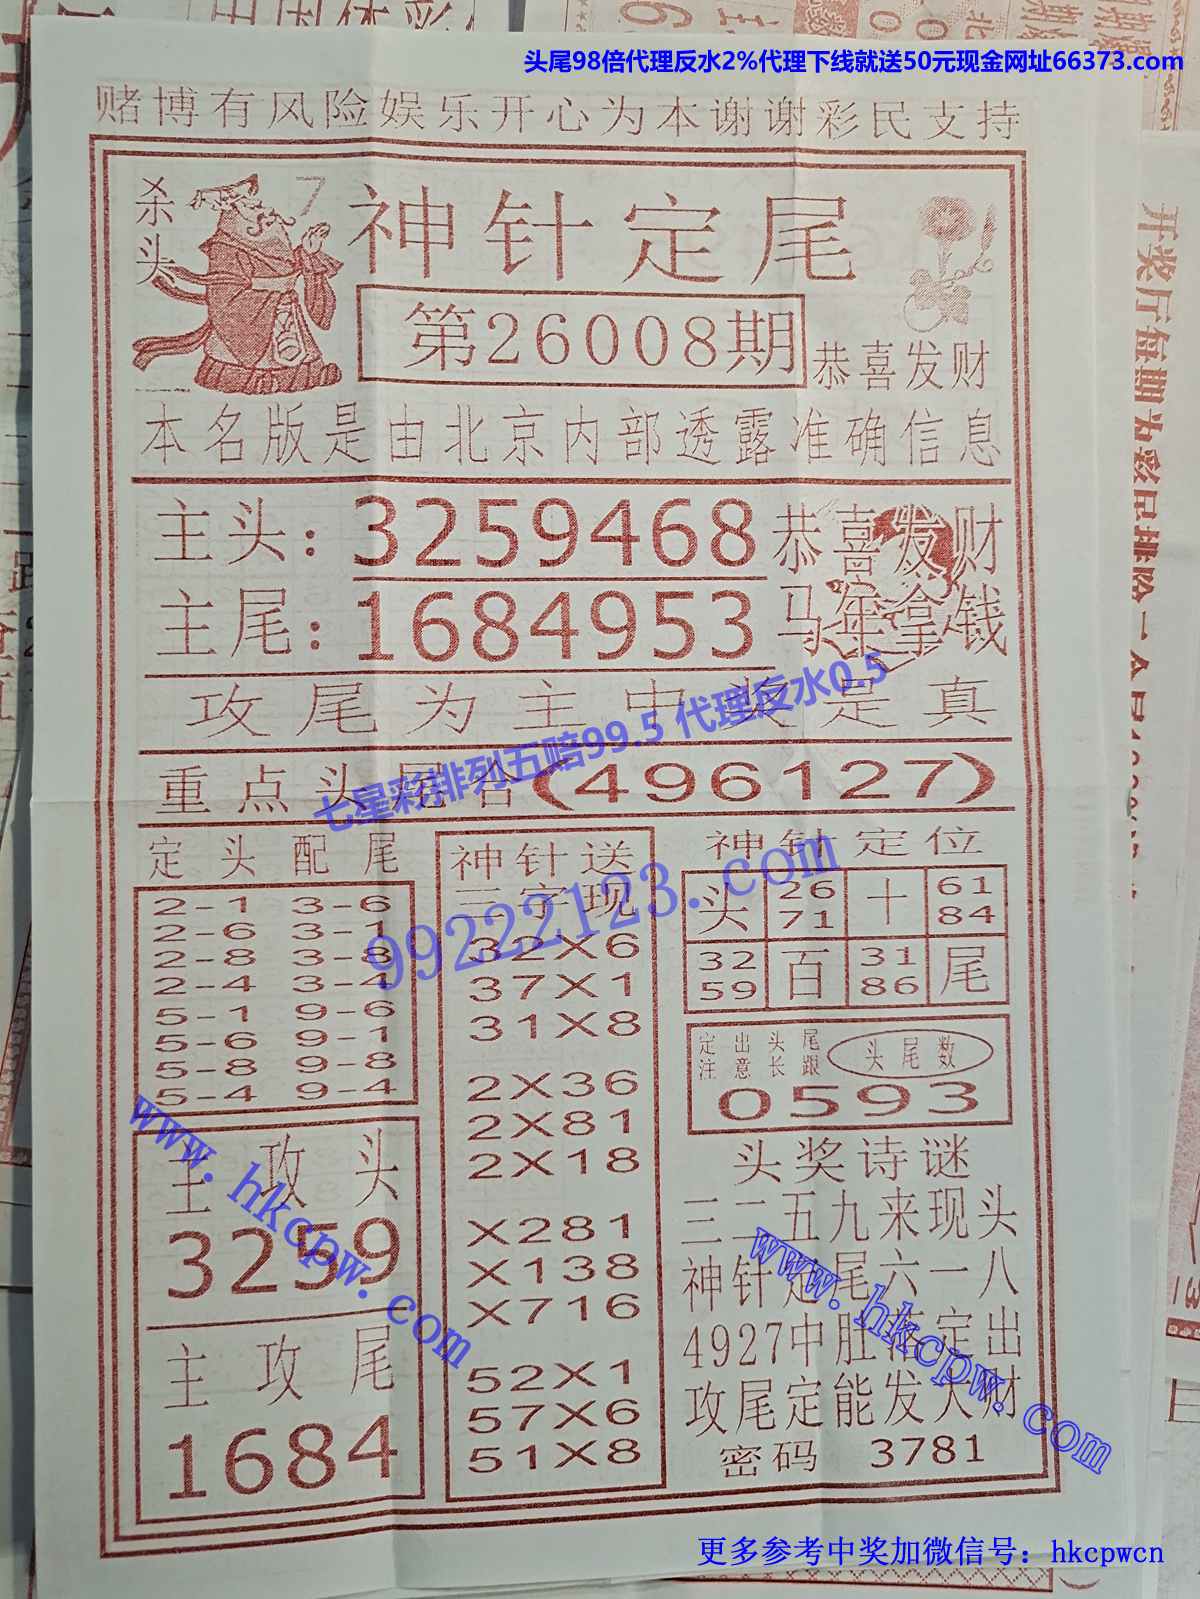 头尾98倍代理反水2%代理下线就送50元现金网址66373.com
赌博有风险娱乐开心为本谢谢彩民支持
杀头
7
神针定尾
第26008期
恭喜发财
本名版是由北京内部透露准确信息
主头：3259468
恭喜发财
主尾：1684953
马年拿钱
攻尾为主中奖是真
七星彩排列五赔99.5 代理反水0.5
重点头尾合(496127)
定头配尾
2-1 3-6
2-6 3-1
2-8 3-8
2-4 3-4
5-1 9-6
5-6 9-1
5-8 9-8
5-4 9-4
主攻头
3259
主攻尾
1684
神针送
三字现
32X6
37X1
31X8
2X36
2X81
2X18
X281
X138
X716
52X1
57X6
51X8
99222123.com
神针定位
头 26 十 61
71 84
32 百 31 尾
59 86
定出头尾
注意长跟
头尾数
0593
头奖诗谜
三二五九来现头
神针定尾六一八
4927中肚落定出
攻尾定能发大财
密码 3781
www.hkcpw.com
www.hkcpw.com
更多参考中奖加微信号：hkcpwcn
开奖厅每期为彩民排险一